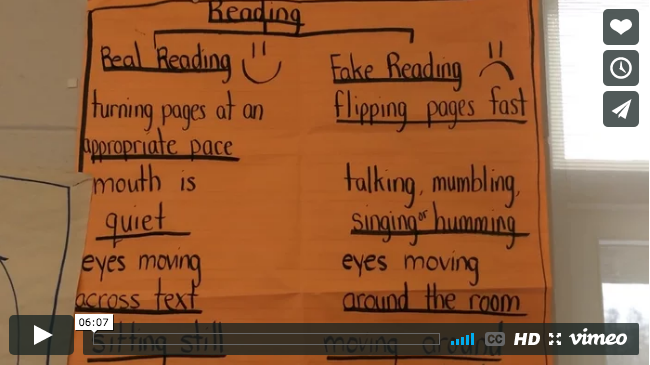 Reading
Real Reading
turning pages at an
appropriate pace
mouth is
quiet
eyes moving
across text
sitting still
Fake Reading
flipping pages fast
talking, mumbling,
singing or humming
eyes moving
around the room
moving around
06:07
CC HD vimeo